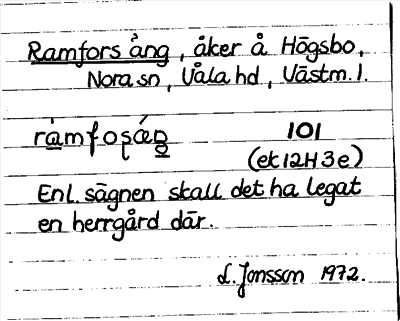 Ramfors äng, åker å Högsbo,
Nora sn, Våla hd, Västm. l.
ràmfoʂǽŋ 101
(ek 12H 3e)
Enl. sägnen skall det ha legat
en herrgård där.
L. Jonsson 1972.